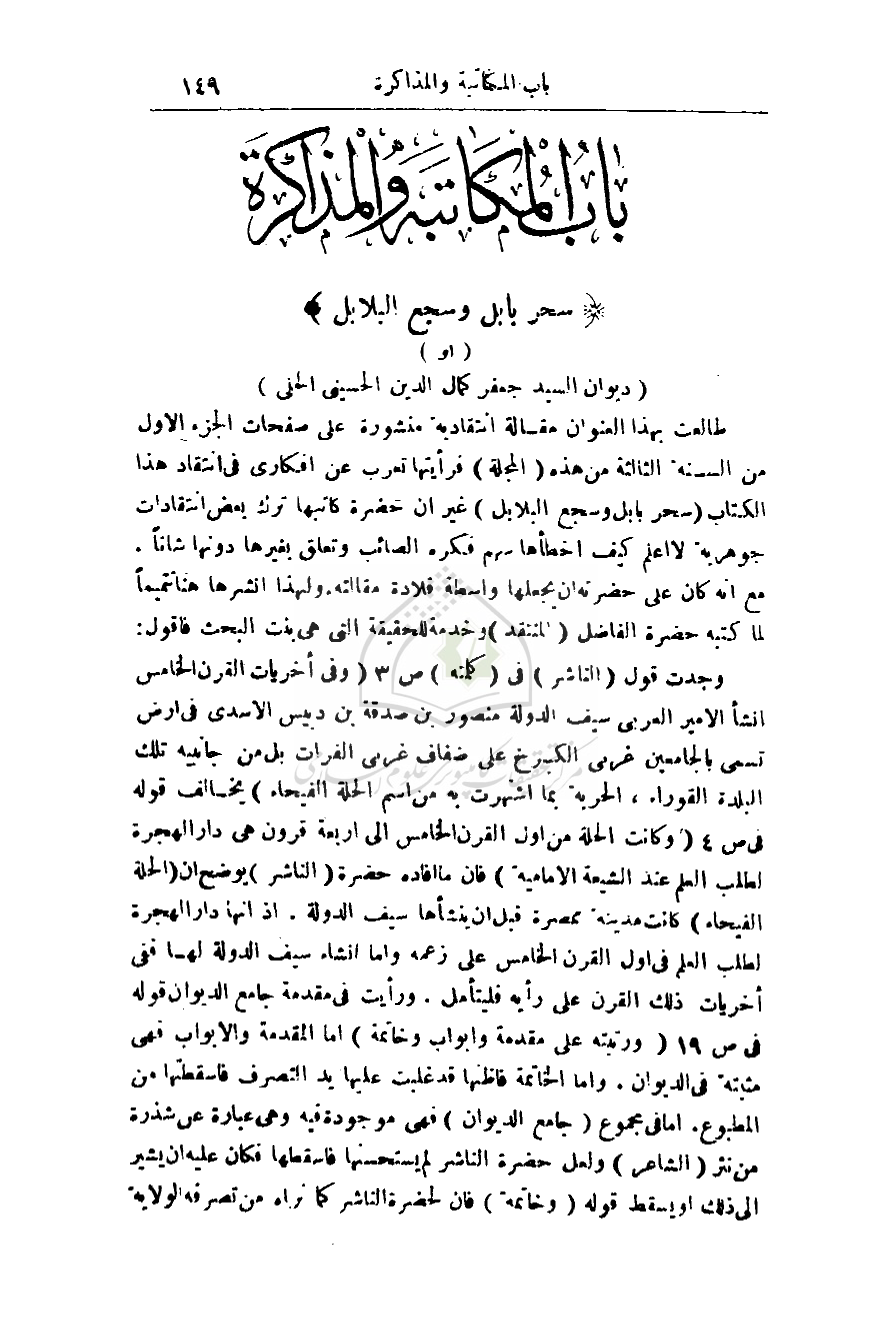 باب المكاتبة والمذاكرة ١٤٩
بَابُ الْمُكَاتَبَةِ وَالْمُذَاكَرَةِ
﴿ سحر بابل وسجع البلابل ﴾
( او )
( ديوان السيد جعفر كمال الدين الحسينى الحلى )
طالعت بهذا العنوان مقالة انتقادية منشورة على صفحات الجزء الاول
من السنة الثالثة من هذه ( المجلة ) فرأيتها تعرب عن افكارى فى انتقاد هذا
الكتاب ( سحر بابل وسجع البلابل ) غير ان حضرة كاتبها ترك بعض انتقادات
جوهرية لا اعلم كيف اخطأها سهم فكره الصائب وتعلق بغيرها دونها شاناً .
مع انه كان على حضرته ان يجعلها واسطة قلادة مقالته. ولهذا انشرها هنا تتميماً
لما كتبه حضرة الفاضل ( المنتقد ) وخدمة للحقيقة التى هى بنت البحث فاقول:
وجدت قول ( الناشر ) فى ( كلمته ) ص ٣ ( وفى أخريات القرن الخامس
انشأ الامير العربى سيف الدولة منصور بن صدقة بن دبيس الاسدى فى ارض
تسمى بالجامعين غربى الكبرخ على ضفاف غربى الفرات بل من جانبيه تلك
البلدة القوراء ، الحرية بما اشتهرت به من اسم الحلة الفيحاء ) يخالف قوله
فى ص ٤ ( وكانت الحلة من اول القرن الخامس الى اربعة قرون هى دار الهجرة
لطلب العلم عند الشيعة الامامية ) فان ما افاده حضرة ( الناشر ) يوضح ان ( الحلة
الفيحاء ) كانت مدينة ممصرة قبل ان ينشأها سيف الدولة . اذ انها دار الهجرة
لطلب العلم فى اول القرن الخامس على زعمه واما انشاء سيف الدولة لها ففى
أخريات ذلك القرن على رأيه فليتأمل . ورأيت فى مقدمة جامع الديوان قوله
فى ص ١٩ ( ورتبته على مقدمة وابواب وخاتمة ) اما المقدمة والابواب فهى
مثبتة فى الديوان . واما الخاتمة فاظنها قد غلبت عليها يد التصرف فاسقطتها من
المطبوع. اما فى مجموع ( جامع الديوان ) فهى موجودة فيه وهى عبارة عن شذرة
من نثر ( الشاعر ) ولعل حضرة الناشر لم يستحسنها فاسقطها فكان عليه ان يشير
الى ذلك او يسقط قوله ( وخاتمة ) فان لحضرة الناشر كما نراه من تصرفه الولاية